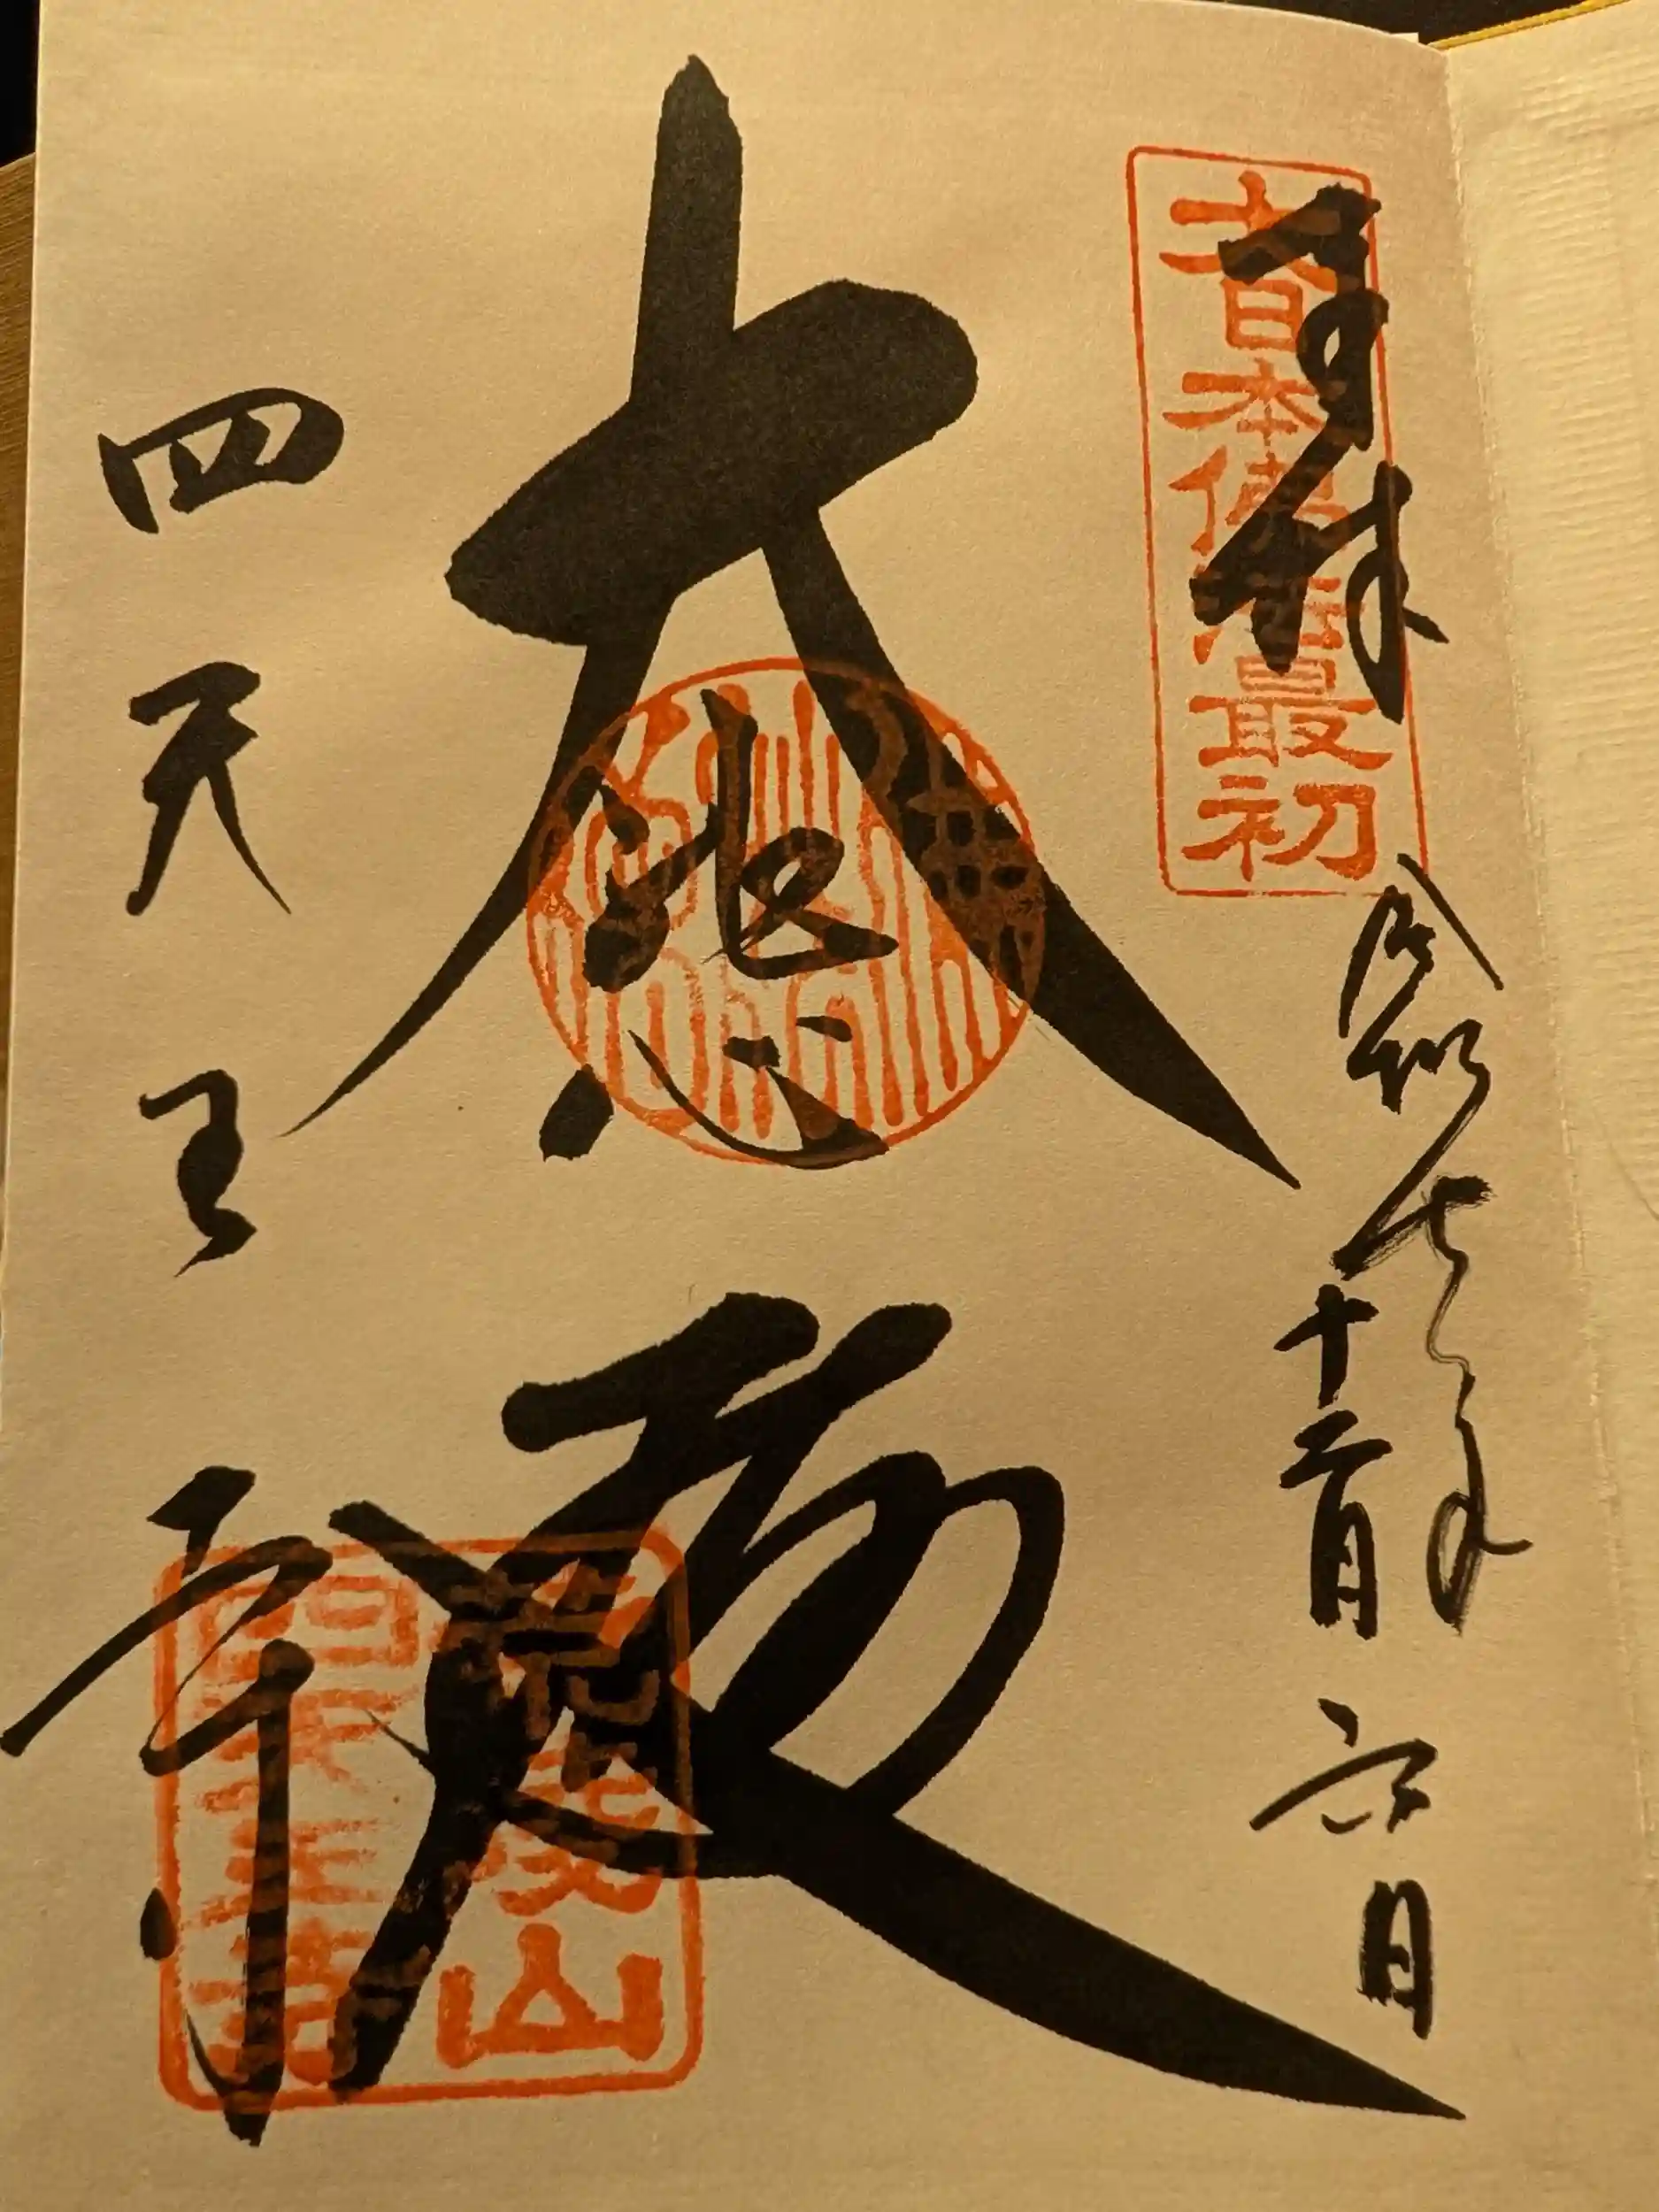 奉拝
大日本佛法最初
令和七年
十二月六日
大悲殿
荒陵山
四天王寺
四天王寺